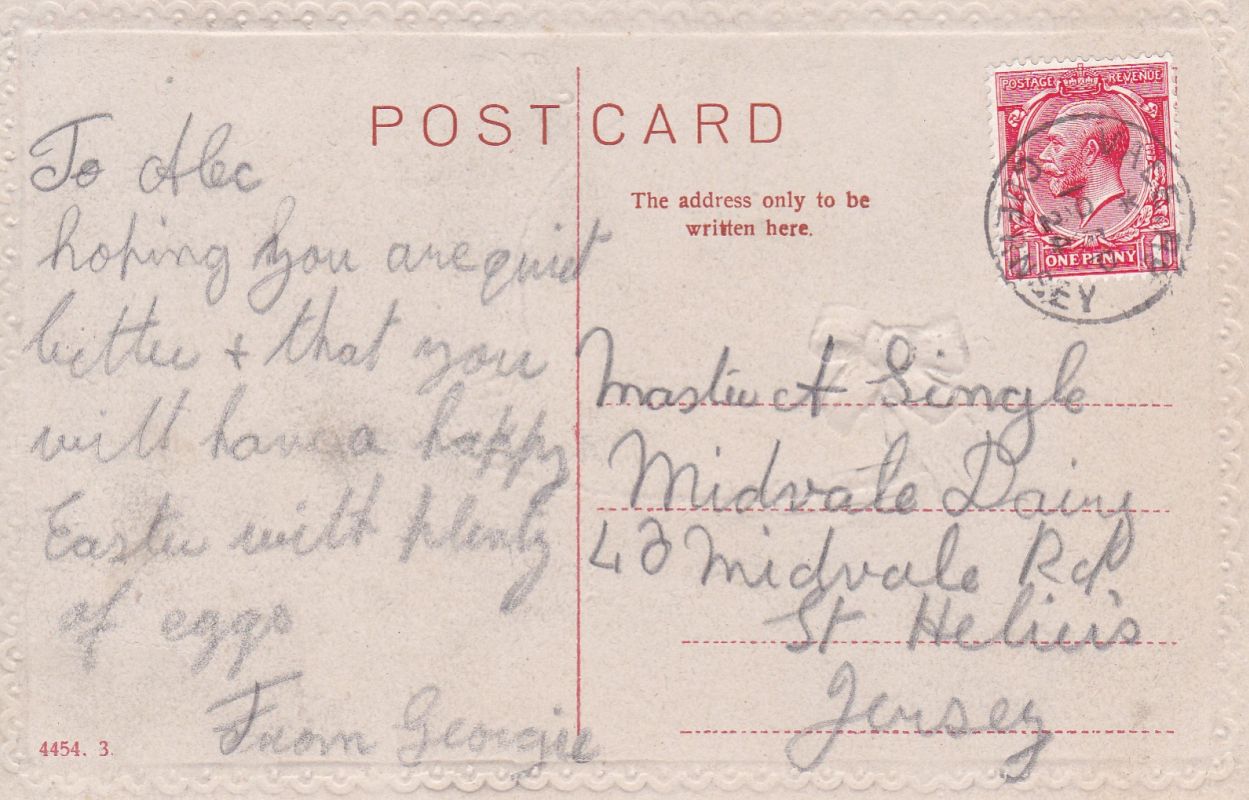 POST CARD
To Alec
hoping you are quiet
better + that you
will have a happy
Easter with plenty
of eggs
From Georgie
4454. 3.
The address only to be
written here.
POSTAGE REVENUE
ONE PENNY
Master A Single
Midvale Dairy
43 Midvale Rd
St Helier's
Jersey